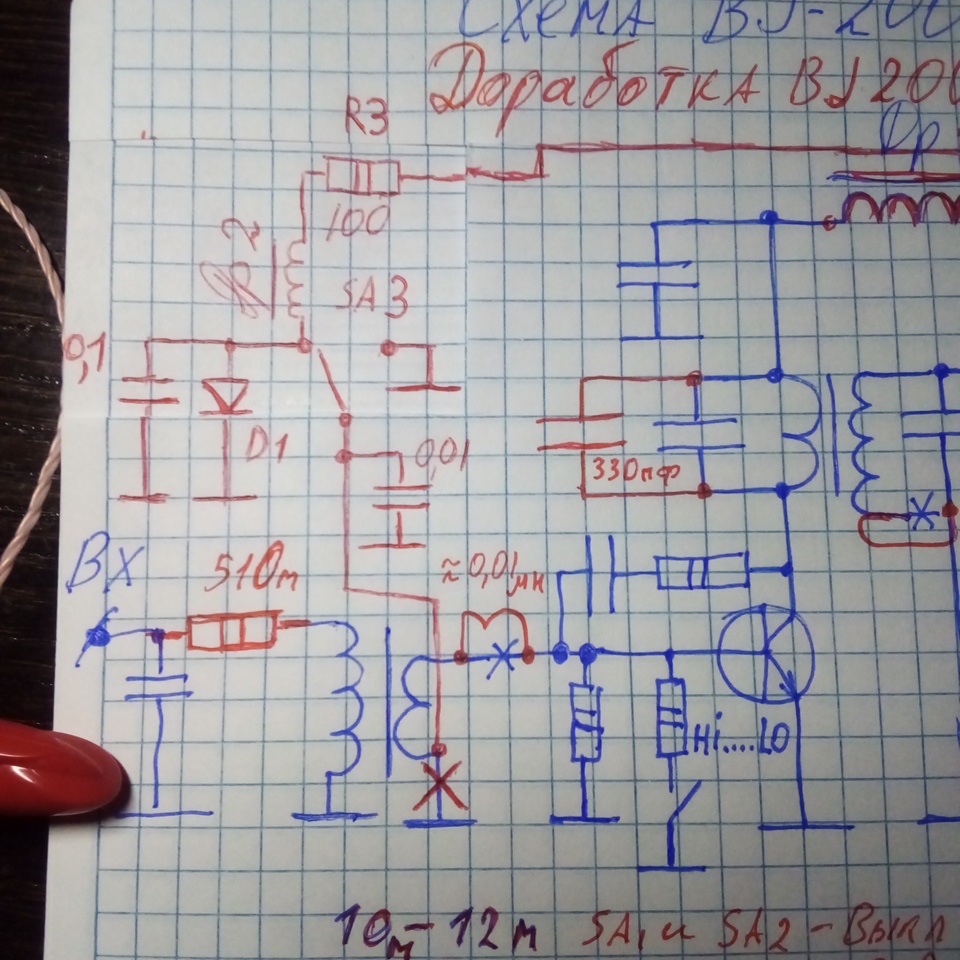 Схема BJ-200
Доработка BJ200
Др
R3
100
2
SA3
0,1
D1
0,01
330пф
Вх
510м
≈0,01мн
Hi....LO
10м-12м SA1 и SA2-Выкл